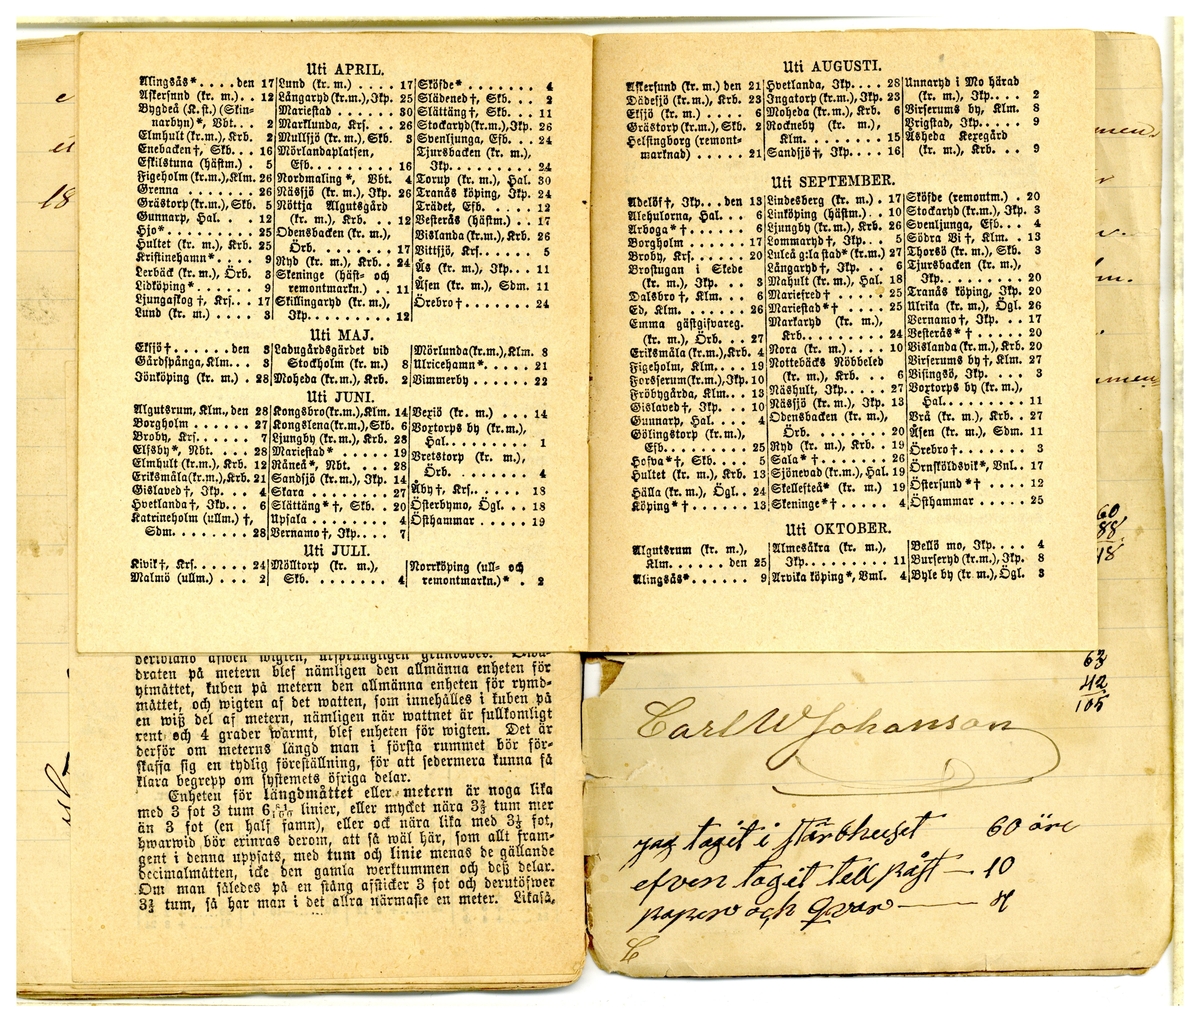 Uti APRIL.
Alingsås* . . . . den 17
Askersund (kr. m.) . . 12
Bygdeå (K. st.) (Skin-
narbyn)*, Vbt. . . 2
Elmhult (kr.m.), Krb. . 2
Enebacken†, Skb. . . 16
Eskilstuna (hästm.) . 5
Figeholm (kr.m.), Klm. 26
Grenna . . . . . . . 26
Grästorp (kr.m.), Skb. 5
Gunnarp, Hal. . . . 12
Hjo* . . . . . . . . 25
Hultet (kr. m.), Krb. 25
Kristinehamn* . . . . 9
Lerbäck (kr. m.), Örb. 3
Lidköping* . . . . . 9
Ljungaskog†, Krs. . . 17
Lund (kr. m.) . . . . 3
Lund (kr. m.) . . . . 17
Långaryd (kr.m.), Jkp. 25
Mariestad . . . . . . 30
Marklunda, Krs. . . . 26
Mullsjö (kr. m.), Skb. 3
Mörlandaplatsen,
Gsb. . . . . . . . 16
Nordmaling*, Vbt. 4
Näsjö (kr. m.), Jkp. 26
Nöttja Algutsgård
(kr. m.), Krb. . . 12
Odensbacken (kr. m.),
Örb. . . . . . . . 17
Ryd (kr. m.), Krb. . 24
Skeninge (häst- och
remontmarkn.) . . 11
Skillingaryd (kr. m.),
Jkp. . . . . . . . 12
Sköfde* . . . . . . . 4
Slädened†, Skb. . . 2
Slättäng†, Skb. . . 11
Stockaryd (kr.m.), Jkp. 26
Svenljunga, Efb. . . 24
Tjursbacken (kr. m.),
Jkp. . . . . . . . 24
Torup (kr. m.), Hal. 30
Tranås köping, Jkp. 24
Trädet, Efb. . . . . 12
Vesterås (hästm.) . . 17
Vislanda (kr. m.), Krb. 26
Vittsjö, Krs. . . . . 5
Ås (kr. m.), Jkp. . . 11
Åsen (kr. m.), Sdm. 11
Örebro† . . . . . . 24
Uti MAJ.
Eksjö† . . . . . . den 3
Gårdspånga, Klm. . . 3
Jönköping (kr. m.) . 28
Ladugårdsgärdet vid
Stockholm (kr. m.) 8
Moheda (kr. m.), Krb. 2
Mörlunda (kr.m.), Klm. 8
Ulricehamn* . . . . . 21
Vimmerby . . . . . . 22
Uti JUNI.
Algutsrum, Klm., den 28
Borgholm . . . . . . 27
Broby, Krs. . . . . . 7
Elfsby*, Nbt. . . . . 28
Elmhult (kr.m.), Krb. 12
Eriksmåla (kr.m.), Krb. 21
Gislaved†, Jkp. . . . 4
Hvetlanda†, Jkp. . . 6
Katrineholm (ullm.) †,
Sdm. . . . . . . . 28
Kongsbro (kr.m.), Klm. 14
Kongslena (kr.m.), Skb. 6
Ljungby (kr. m.), Krb. 28
Mariestad* . . . . . 19
Råneå*, Nbt. . . . . 28
Sandsjö (kr. m.), Jkp. 14
Skara . . . . . . . . 27
Slättäng*†, Skb. . . 20
Upsala . . . . . . . 4
Vernamo†, Jkp. . . . 7
Vexiö (kr. m.) . . . 14
Voxtorps by (kr. m.),
Hal. . . . . . . . 1
Vretstorp (kr. m.),
Örb. . . . . . . . 4
Åby†, Krs. . . . . . 18
Österbymo, Ögl. . . 18
Östhammar . . . . . 19
Uti JULI.
Kivik†, Krs. . . . . 24
Malmö (ullm.) . . . . 2
Mölltorp (kr. m.),
Skb. . . . . . . . 4
Norrköping (ull- och
remontmarkn.)* . . 2
Uti AUGUSTI.
Askersund (kr. m.) den 21
Dädesjö (kr. m.), Krb. 23
Eksjö (kr. m.) . . . . 6
Grästorp (kr. m.), Skb. 2
Helsingborg (remont-
marknad) . . . . . 21
Hvetlanda, Jkp. . . . 28
Ingatorp (kr. m.), Jkp. 23
Moheda (kr. m.), Krb. 6
Rockneby (kr. m.),
Klm. . . . . . . . 15
Sandsjö†, Jkp. . . . 16
Unnaryd i Mo härad
(kr. m.), Jkp. . . . 2
Virserums by, Klm. 8
Vrigstad, Jkp. . . . 9
Åsheda Kexegård
(kr. m.), Krb. . . . 9
Uti SEPTEMBER.
Adelöf†, Jkp. . . den 13
Alehulorna, Hal. . . . 6
Arboga*† . . . . . . 6
Borgholm . . . . . . 17
Broby, Krs. . . . . . 20
Brostugan i Skede
(kr. m.), Jkp. . . . 3
Dalsbro†, Klm. . . . 6
Ed, Klm. . . . . . . 26
Emma gästgifvareg.
(kr. m.), Örb. . . . 27
Eriksmåla (kr.m.), Krb. 4
Figeholm, Klm. . . . 19
Forsserum (kr.m.), Jkp. 10
Fröbygårda, Klm. . . 13
Gislaved†, Jkp. . . . 10
Gunnarp, Hal. . . . 4
Gölingstorp (kr.m.),
Efb. . . . . . . . 25
Hofva*†, Skb. . . . 5
Hultet (kr. m.), Krb. 13
Hälla (kr. m.), Ögl. . 24
Köping*† . . . . . . 13
Lindesberg (kr. m.) . 17
Linköping (hästm.) . 10
Ljungby (kr. m.), Krb. 26
Lommaryd†, Jkp. . . 5
Luleå g:la stad* (kr.m.) 27
Långaryd†, Jkp. . . 6
Mahult (kr. m.), Hal. 18
Mariefred† . . . . . 25
Mariestad*† . . . . . 25
Markaryd (kr. m.),
Krb. . . . . . . . 24
Nora (kr. m.) . . . . 10
Nottebäcks Nöbbeled
(kr. m.), Krb. . . . 6
Näshult, Jkp. . . . . 27
Näsjö (kr. m.), Jkp. 13
Odensbacken (kr. m.),
Örb. . . . . . . . 20
Ryd (kr. m.), Krb. . 19
Sala*† . . . . . . . 26
Sjönevad (kr.m.), Hal. 19
Skellefteå* (kr. m.) 19
Skeninge*† . . . . . 4
Sköfde (remontm.) . 20
Stockaryd (kr. m.), Jkp. 3
Svenljunga, Efb. . . 4
Södra Vi†, Klm. . . 13
Thorsö (kr. m.), Skb. 3
Tjursbacken (kr. m.),
Jkp. . . . . . . . 20
Tranås köping, Jkp. 20
Ulrika (kr. m.), Ögl. 26
Vernamo†, Jkp. . . 17
Vesterås*† . . . . . 20
Vislanda (kr. m.), Krb. 20
Virserums by†, Klm. 27
Visingsö, Jkp. . . . 3
Voxtorps by (kr. m.),
Hal. . . . . . . . 11
Vrå (kr. m.), Krb. . 27
Åsen (kr. m.), Sdm. 11
Örebro† . . . . . . 3
Örnsköldsvik*, Vnl. . 17
Östersund*† . . . . 12
Östhammar . . . . . 25
Uti OKTOBER.
Algutsrum (kr. m.),
Klm. . . . . . den 25
Alingsås* . . . . . . 9
Almesåkra (kr. m.),
Jkp. . . . . . . . 11
Arvika köping*, Vml. 4
Bellö mo, Jkp. . . . 4
Burseryd (kr. m.), Jkp. 8
Byle by (kr. m.), Ögl. 3
draten på metern blef nämligen den allmänna enheten för
ytmåttet, kuben på metern den allmänna enheten för rymd-
måttet, och wigten af det watten, som innehålles i kuben på
en wiß del af metern, nämligen när wattnet är fullkomligt
rent och 4 grader warmt, blef enheten för wigten. Det är
derför om meterns längd man i första rummet bör för-
skaffa sig en tydlig föreställning, för att sedermera kunna få
klara begrepp om systemets öfriga delar.
Enheten för längdmåttet eller metern är noga lika
med 3 fot 3 tum linier, eller mycket nära 3¾ tum mer
än 3 fot (en half famn), eller ock nära lika med 3⅓ fot,
hwarwid bör erinras derom, att så wäl här, som allt fram-
gent i denna uppsats, med tum och linie menas de gällande
decimalmåtten, icke den gamla werktummen och deß delar.
Om man således på en stång afsticker 3 fot och derutöfwer
3¾ tum, så har man i det allra närmaste en meter. Likaså,
60
88
48
63
42
105
Carl W Johanson
jag tagit i stärbhuset 60 öre
efven tagit till påst — 10
papper och qvar — 4
18